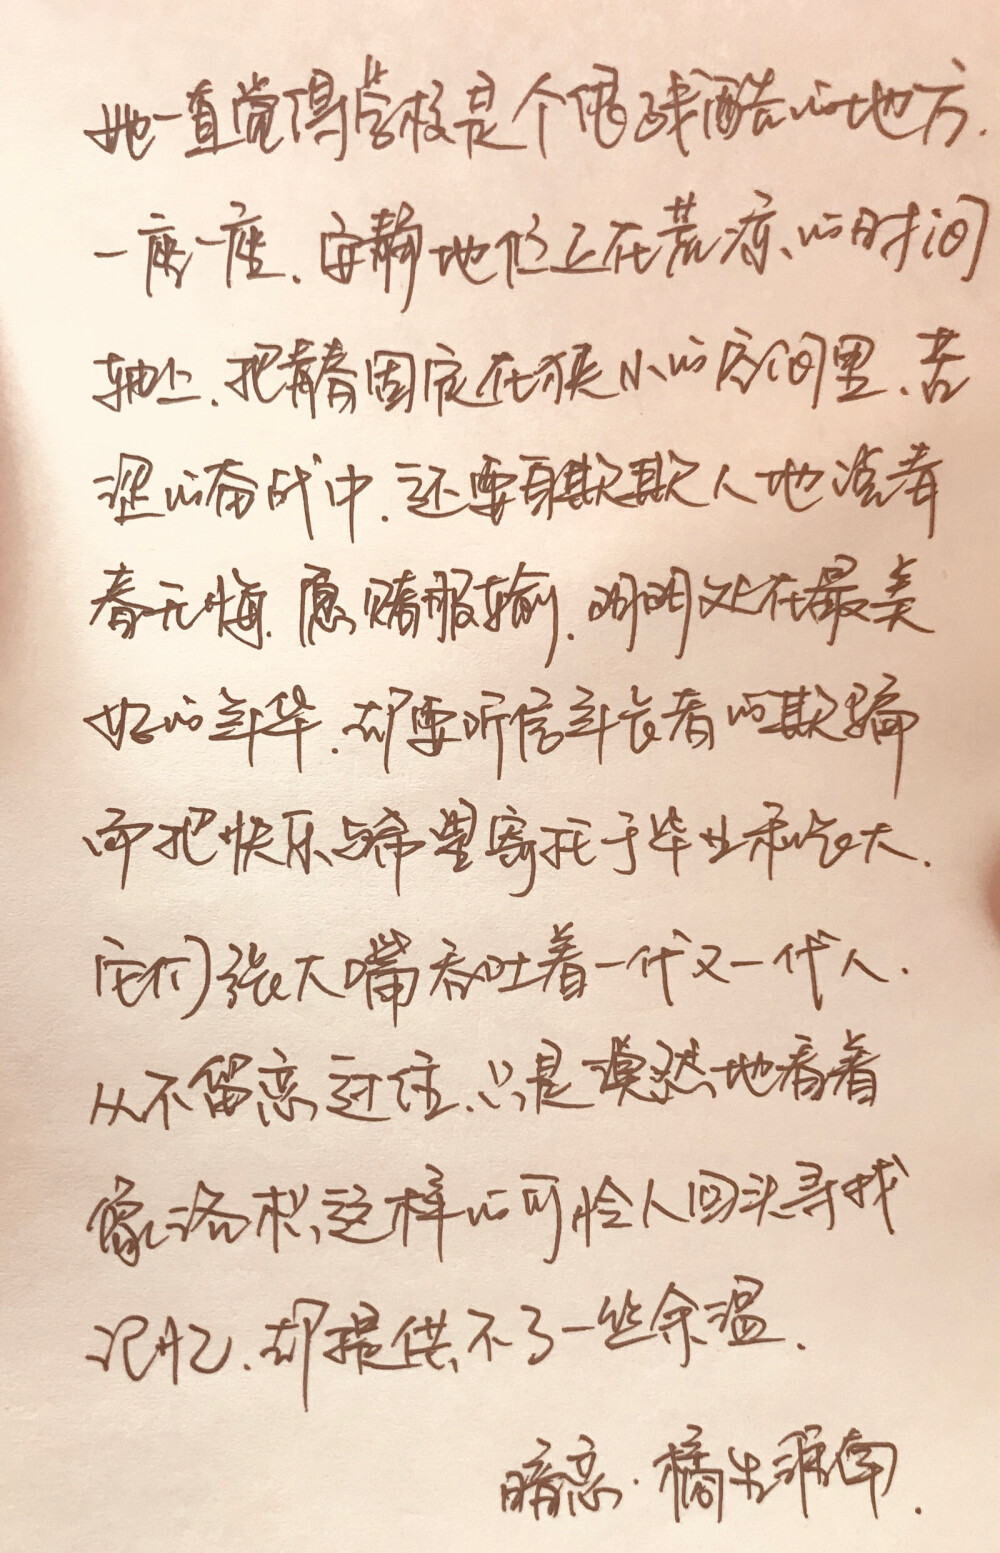 她一直觉得学校是个很残酷的地方.
一座一座.安静地伫立在荒凉的时间
轴上.把青春固定在狭小的房间里.苦
涩的奋战中.还要自欺欺人地说青
春无悔.愿赌服输.明明处在最美
好的年华.却要听信年长者的欺骗
而把快乐与希望寄托于毕业和长大.
它们张大嘴吞吐着一代又一代人.
从不留恋过往.只是漠然地看着
像洛枳这样的可怜人回头寻找
记忆.却提供不了一些余温.
暗恋·橘生淮南.